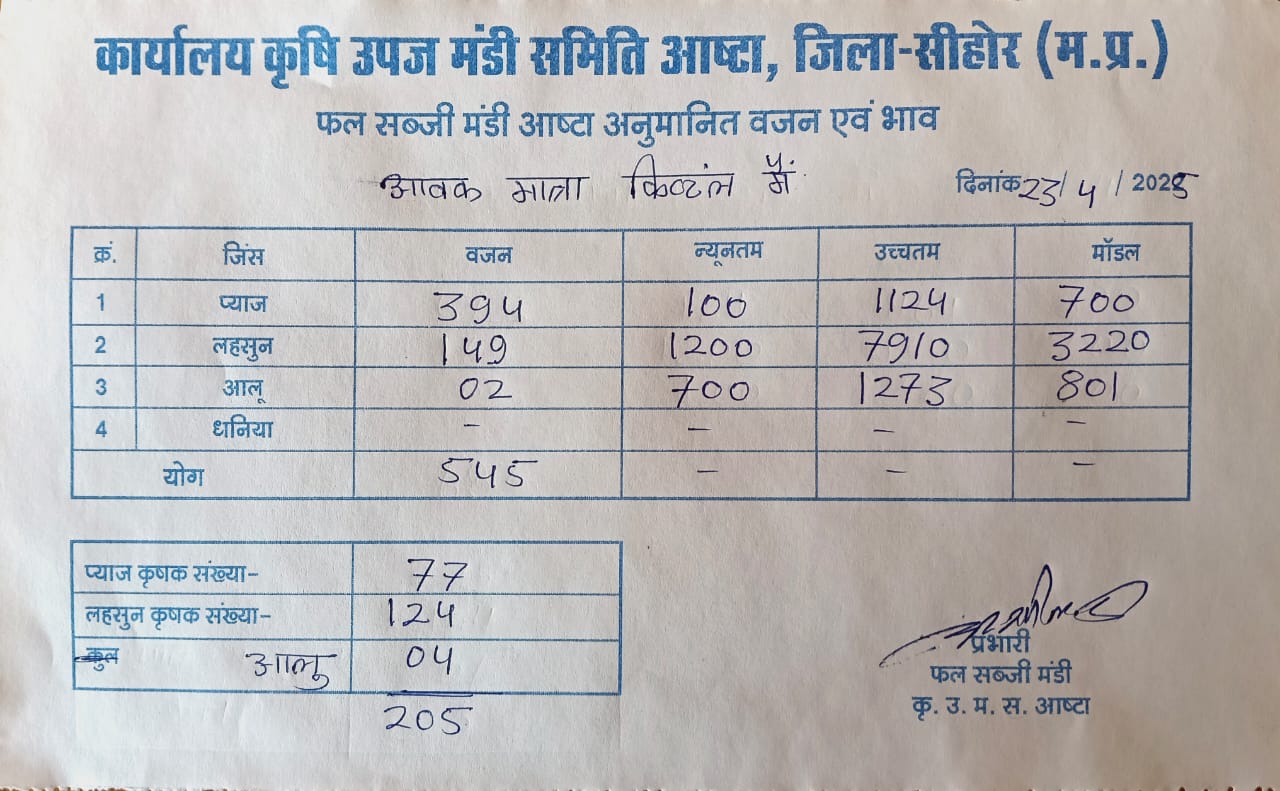 कार्यालय कृषि उपज मंडी समिति आष्टा, जिला-सीहोर (म.प्र.)
फल सब्जी मंडी आष्टा अनुमानित वजन एवं भाव
आवक मात्रा क्विटंल में
दिनांक 23/4/2025
क्रं. जिंस वजन न्यूनतम उच्चतम मॉडल
1 प्याज 394 100 1124 700
2 लहसुन 149 1200 7910 3220
3 आलू 02 700 1273 801
4 धनिया - - - -
योग 545 - - -
प्याज कृषक संख्या- 77
लहसुन कृषक संख्या- 124
कुल आलू 04
205
प्रभारी
फल सब्जी मंडी
कृ. उ. म. स. आष्टा